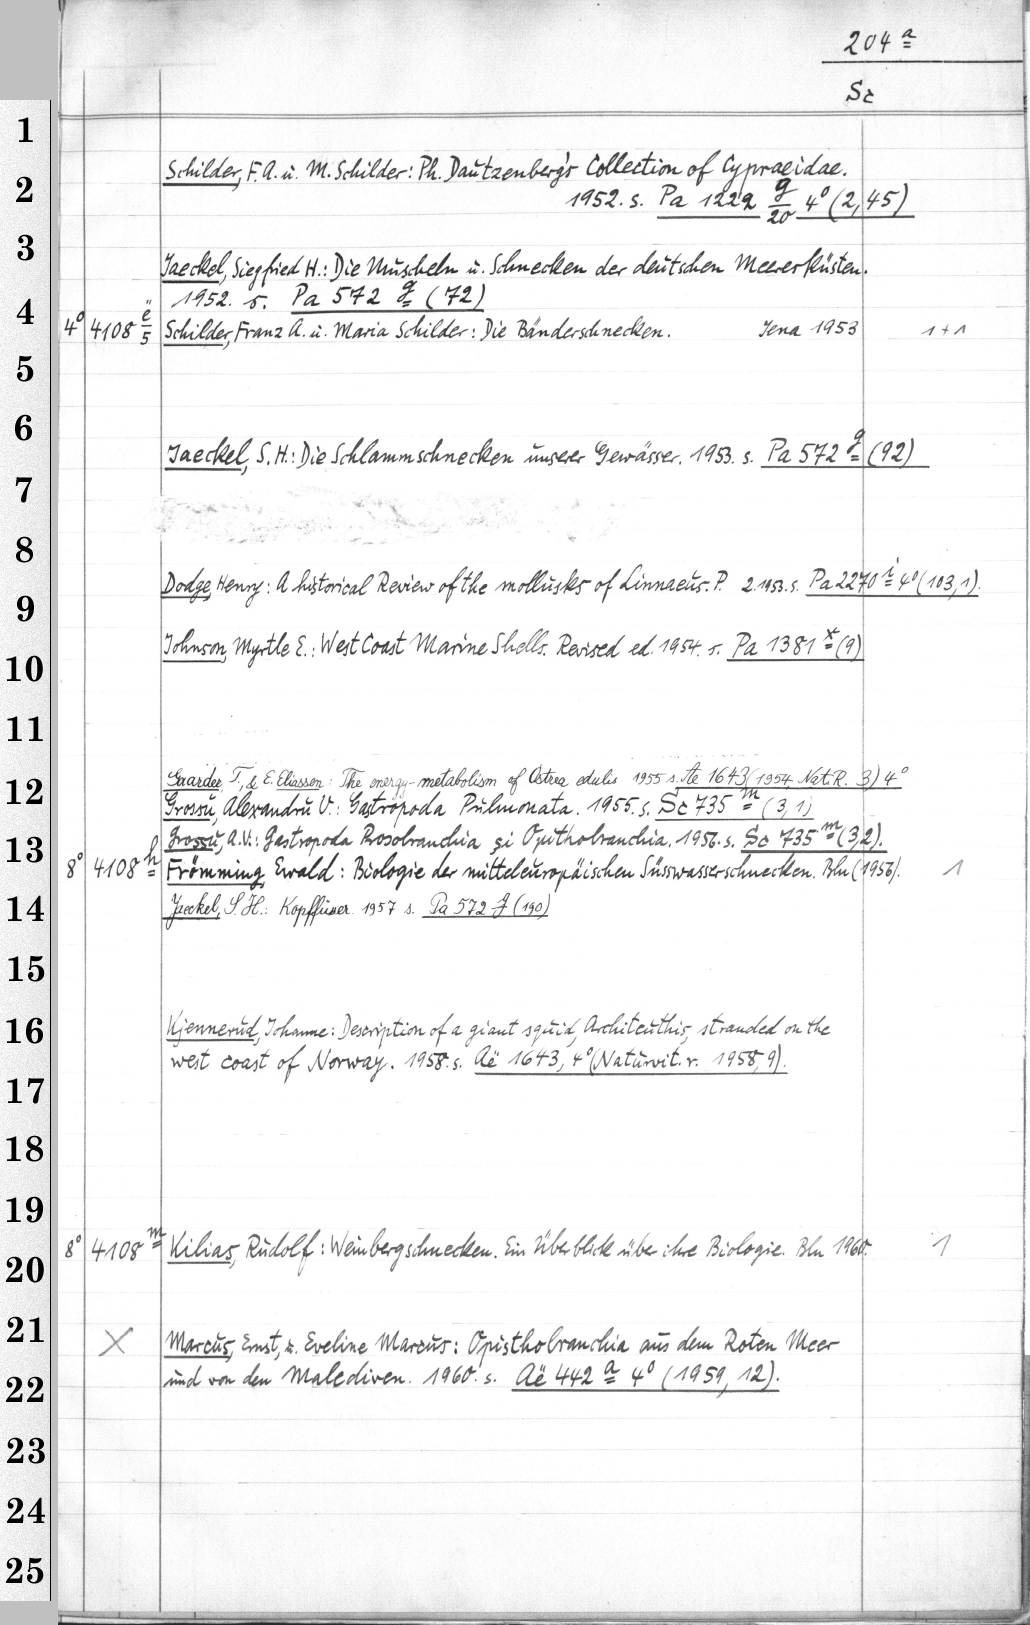 204 a
Sc
1
Schilder, F. A. u. M. Schilder: Ph. Dautzenberg's Collection of Cypraeidae.
2
1952. s. Pa 1222 g/20 4° (2,45)
3
Jaeckel, Siegfried H.: Die Muscheln u. Schnecken der deutschen Meeresküsten.
1952. s. Pa 572 g (72)
4
4° 4108 ë/5 Schilder, Franz A. u. Maria Schilder: Die Bänderschnecken. Jena 1953 1+1
5
6
Jaeckel, S. H.: Die Schlammschnecken unserer Gewässer. 1953. s. Pa 572 g (92)
7
8
Dodge, Henry: A historical Review of the mollusks of Linnaeus. P. 2. 1953. s. Pa 2270 i 4° (103,1).
9
Johnson, Myrtle E.: West Coast Marine Shells. Revised ed. 1954. s. Pa 1381 x (9)
10
11
Gaarder, T., & E. Eliassen: The energy-metabolism of Ostrea edulis 1955 s. Ae 1643 (1954, Nat. R. 3) 4°
12
Grossu, Alexandru V.: Gastropoda Pulmonata. 1955. s. Sc 735 m (3,1)
Grossu, A. V.: Gastropoda Prosobranchia și Opisthobranchia. 1956. s. Sc 735 m (3,2).
13
8° 4108 h Frömming, Ewald: Biologie der mitteleuropäischen Süsswasserschnecken. Bln (1956). 1
14
Jaeckel, S. H.: Kopffüßer 1957 s. Pa 572 g (190)
15
16
Kjennerud, Johanne: Description of a giant squid, Architeuthis, stranded on the
west coast of Norway. 1958. s. Aë 1643, 4° (Naturvit. r. 1958, 9).
17
18
19
8° 4108 m Kilias, Rudolf: Weinbergschnecken. Ein Überblick über ihre Biologie. Bln 1960. 1
20
21
X Marcus, Ernst, u. Eveline Marcus: Opisthobranchia aus dem Roten Meer
22
und von den Malediven. 1960. s. Aë 442 a 4° (1959, 12).
23
24
25